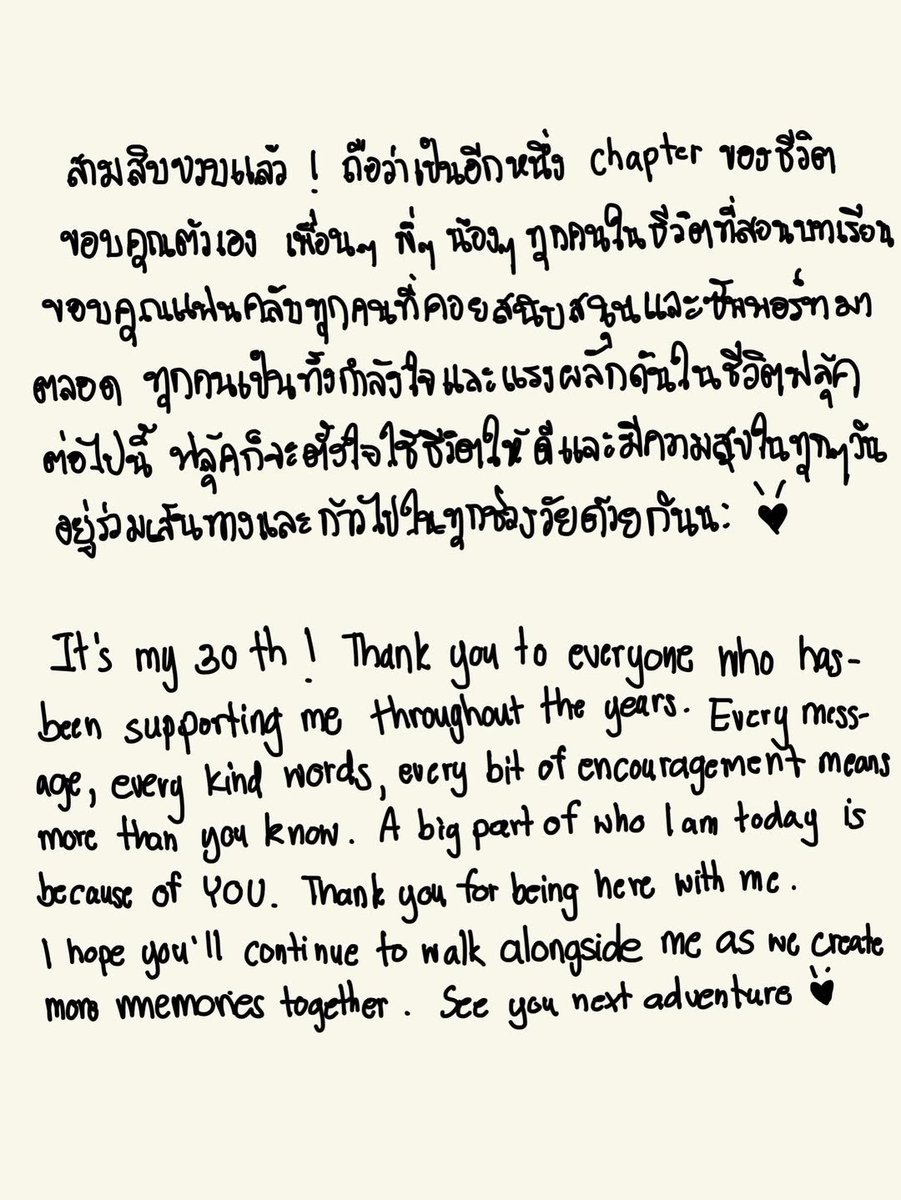 สามสิบขวบแล้ว ! ถือว่าเป็นอีกหนึ่ง chapter ของชีวิต
ขอบคุณตัวเอง เพื่อนๆ พี่ๆ น้องๆ ทุกคนในชีวิตที่สอนบทเรียน
ขอบคุณแฟนคลับทุกคนที่คอยสนับสนุนและซัพพอร์ทมา
ตลอด ทุกคนเป็นทั้งกำลังใจและแรงผลักดันในชีวิตฟลุ้ค
ต่อไปนี้ ฟลุ้คก็จะตั้งใจใช้ชีวิตให้ดีและมีความสุขในทุกๆวัน
อยู่ร่วมเส้นทางและก้าวไปในทุกช่วงวัยด้วยกันนะ
It's my 30 th ! Thank you to everyone who has-
been supporting me throughout the years. Every mess-
age, every kind words, every bit of encouragement means
more than you know. A big part of who I am today is
because of YOU. Thank you for being here with me.
I hope you'll continue to walk alongside me as we create
more memories together. See you next adventure